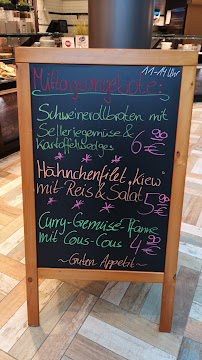 11-14 Uhr
Mittagsangebote:
Schweinerollbraten mit
Selleriegemüse &
Kartoffelwedges 6,90 €
Hähnchenfilet „Kiew"
mit Reis & Salat 5,90 €
Curry-Gemüse-Pfanne
mit Cous-Cous 4,90 €
~Guten Appetit~